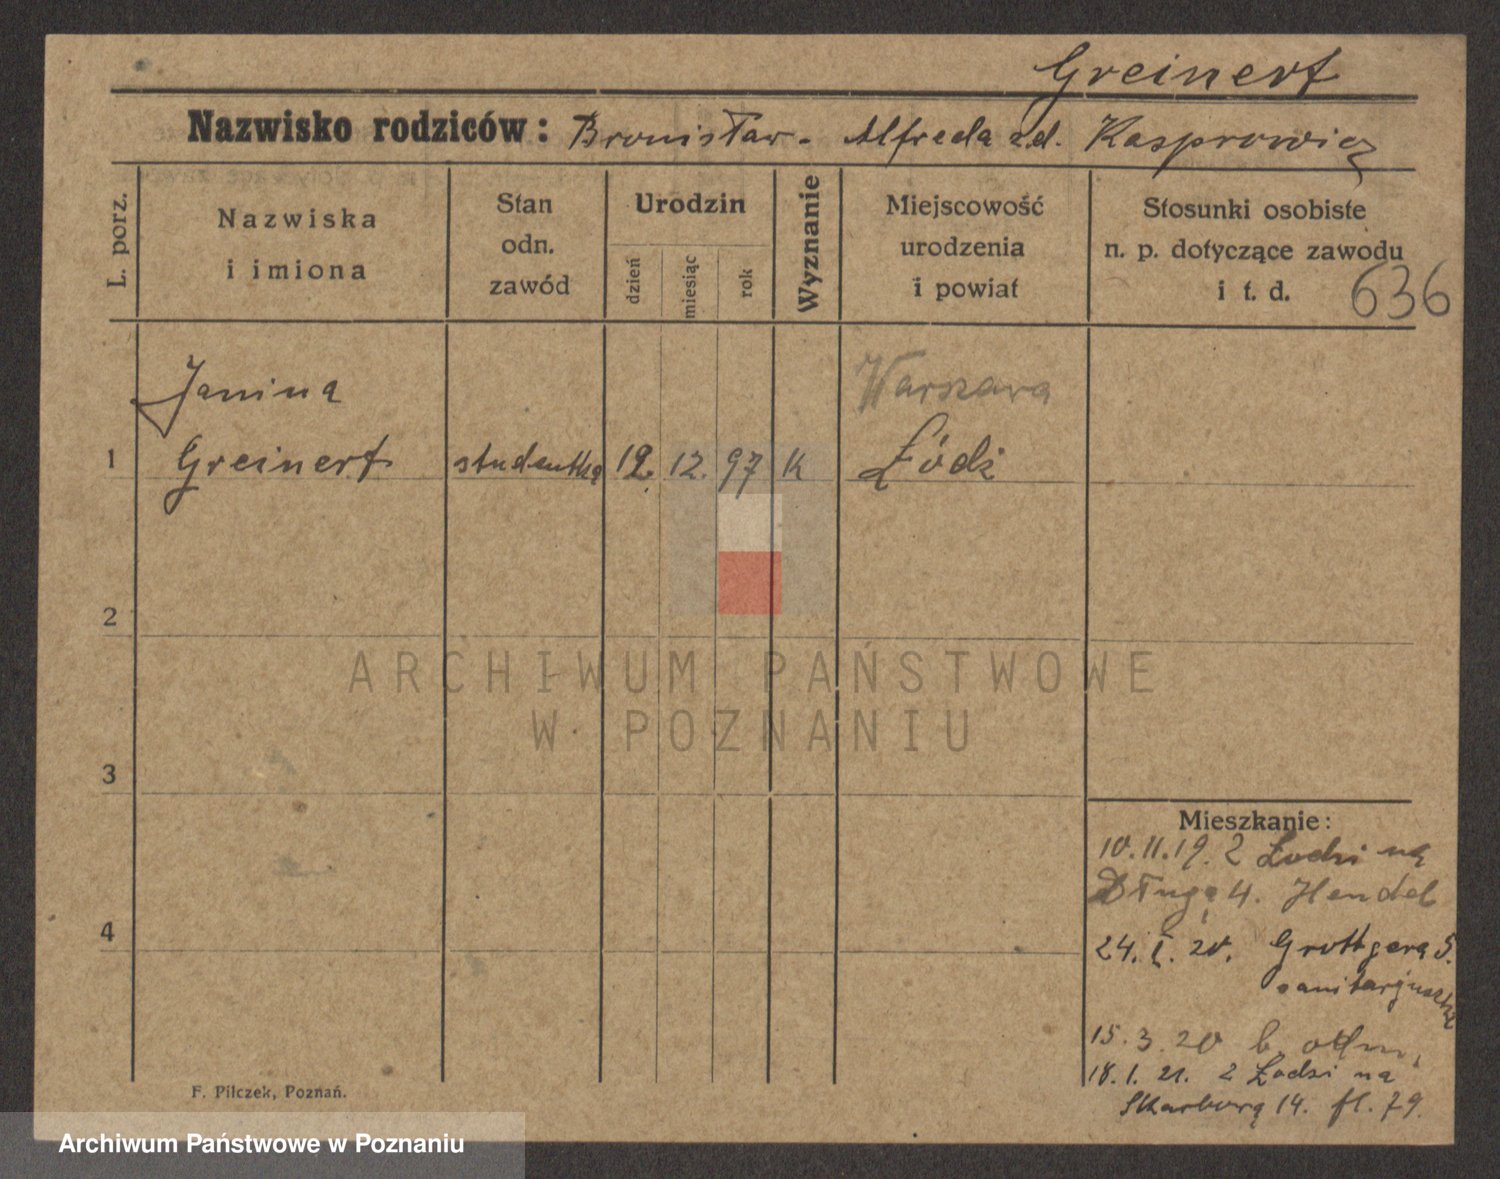 Greinert
Nazwisko rodziców: Bronisław - Alfreda zd. Kasprowicz
L. porz.
Nazwiska
i imiona
Stan
odn.
zawód
Urodzin
dzień
miesiąc
rok
Wyznanie
Miejscowość
urodzenia
i powiat
Stosunki osobiste
n. p. dotyczące zawodu
i t. d. 636
Janina
Warszawa
1 Greinert studentka 12. 12. 97 K Łódź
2
ARCHIWUM PAŃSTWOWE
W POZNANIU
3
Mieszkanie:
10.11.19. z Łodzi na
Długą 4. Hendel
4
24. I. 20. Grottgera 5.
sanitarjuszka
15.3.20 b. odm.
18.1.21. z Łodzi na
Skarbową 14. fl. 79.
F. Pilczek, Poznań.
Archiwum Państwowe w Poznaniu